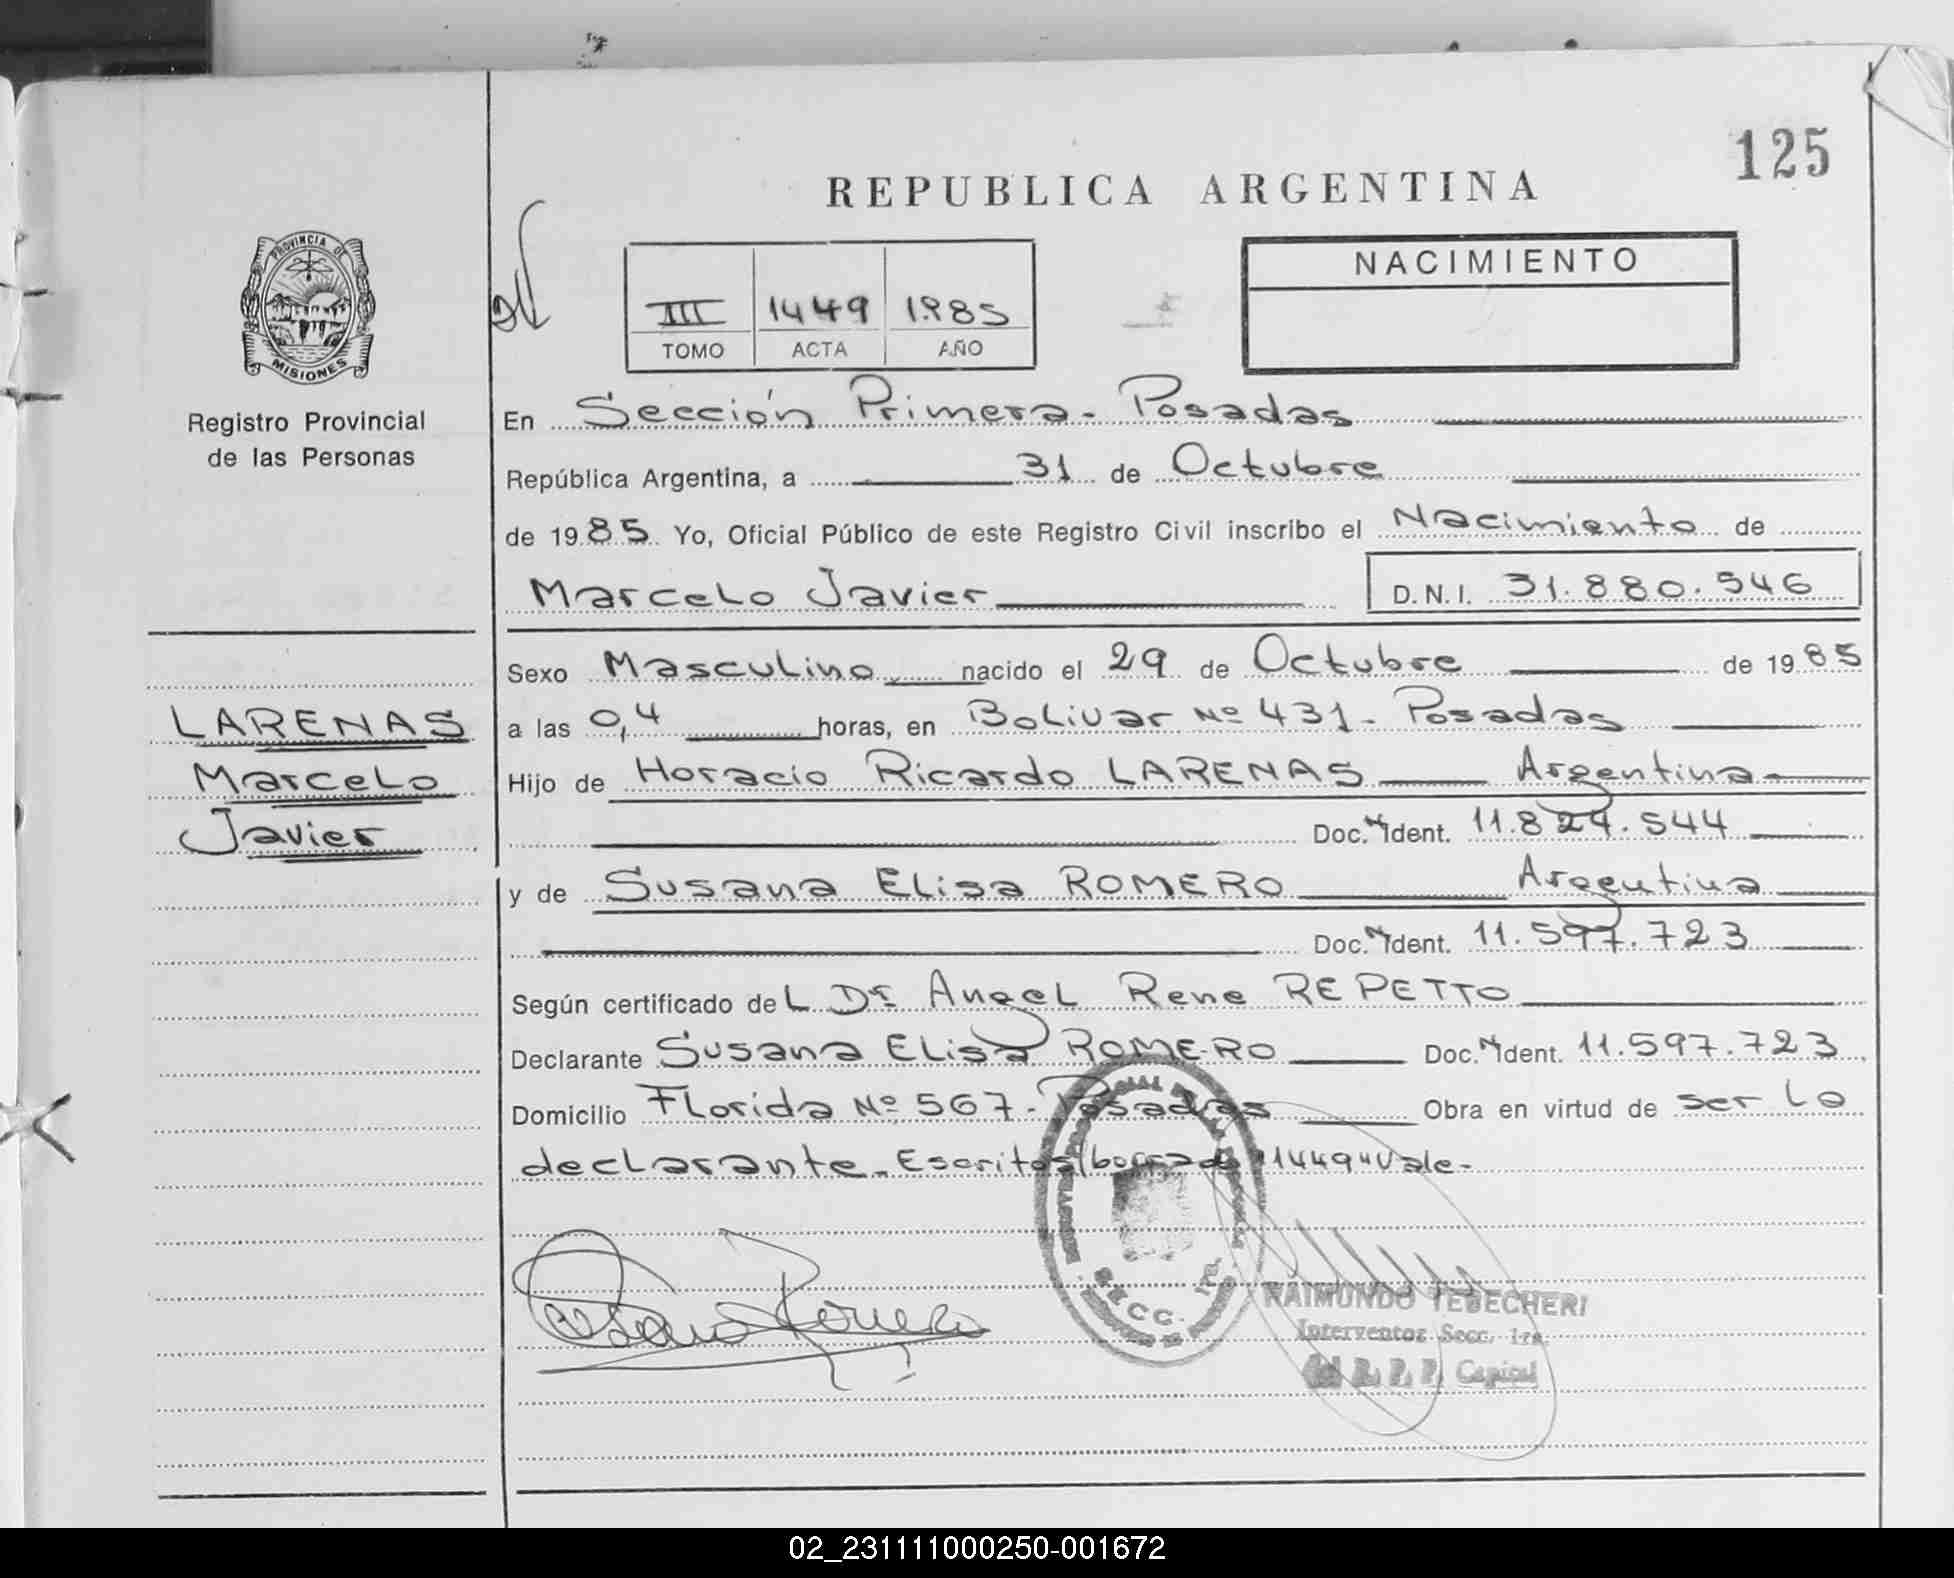 125
REPUBLICA ARGENTINA
PROVINCIA DE
MISIONES
Registro Provincial
de las Personas
III 1449 1985
TOMO ACTA AÑO
NACIMIENTO
En Sección Primera - Posadas
República Argentina, a 31 de Octubre
de 1985 Yo, Oficial Público de este Registro Civil inscribo el Nacimiento de
Marcelo Javier D.N.I. 31.880.546
Sexo Masculino nacido el 29 de Octubre de 1985
LARENAS
Marcelo
Javier
a las 0,4 horas, en Bolivar Nº 431 - Posadas
Hijo de Horacio Ricardo LARENAS Argentina
Doc. Ident. 11.824.544
y de Susana Elisa ROMERO Argentina
Doc. Ident. 11.597.723
Según certificado del Dr. Angel Rene REPETTO
Declarante Susana Elisa ROMERO Doc. Ident. 11.597.723
Domicilio Florida Nº 567 - Posadas Obra en virtud de ser la
declarante. Escrito s/borrado "1449" Vale-
SECC. 1ra.
RAIMUNDO TEBECHERI
Interventor Secc. 1ra.
del R. P. P. Capital
02_231111000250-001672